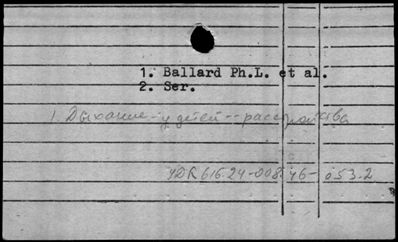 1. Ballard Ph.L. et al.
2. Ser.
1. Дыхание - у детей -- расстройства
УДК 616.24-008.46-053.2